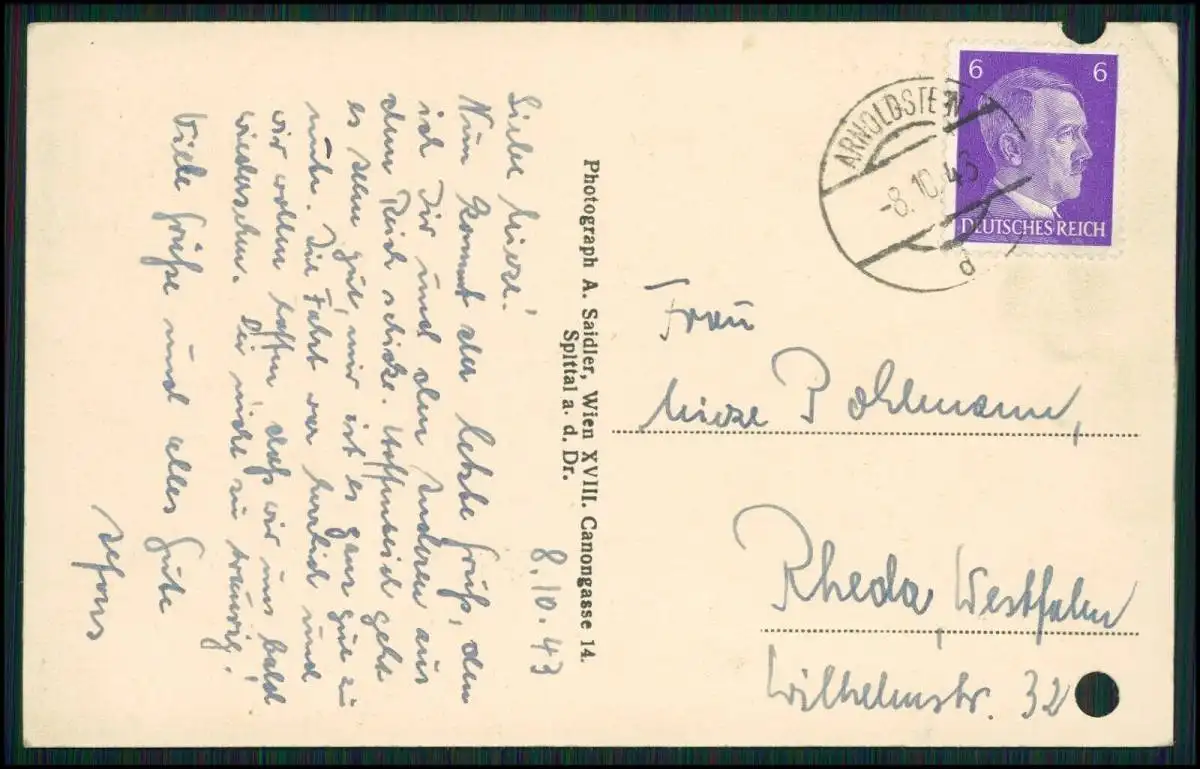 8.10.43
Liebe Mieze!
Nun kommt der letzte Gruß, den
ich Dir und den Anderen aus
dem Reich schicke. Hoffentlich geht
es sehr gut, mir ist es ganz gut zu
mute. Die Fahrt war herrlich und
wir wollen hoffen, daß wir uns bald
wiedersehen. Sei nicht zu traurig!
Viele Grüße und alles Gute
Photograph A. Saidler, Wien XVIII. Canongasse 14.
Spittal a. d. Dr.
6 6
DEUTSCHES REICH
ARNOLDSTEIN
-8.10.43
d
Frau
Mieze Bohlmann,
Rheda, Westfalen
Wilhelmstr. 32